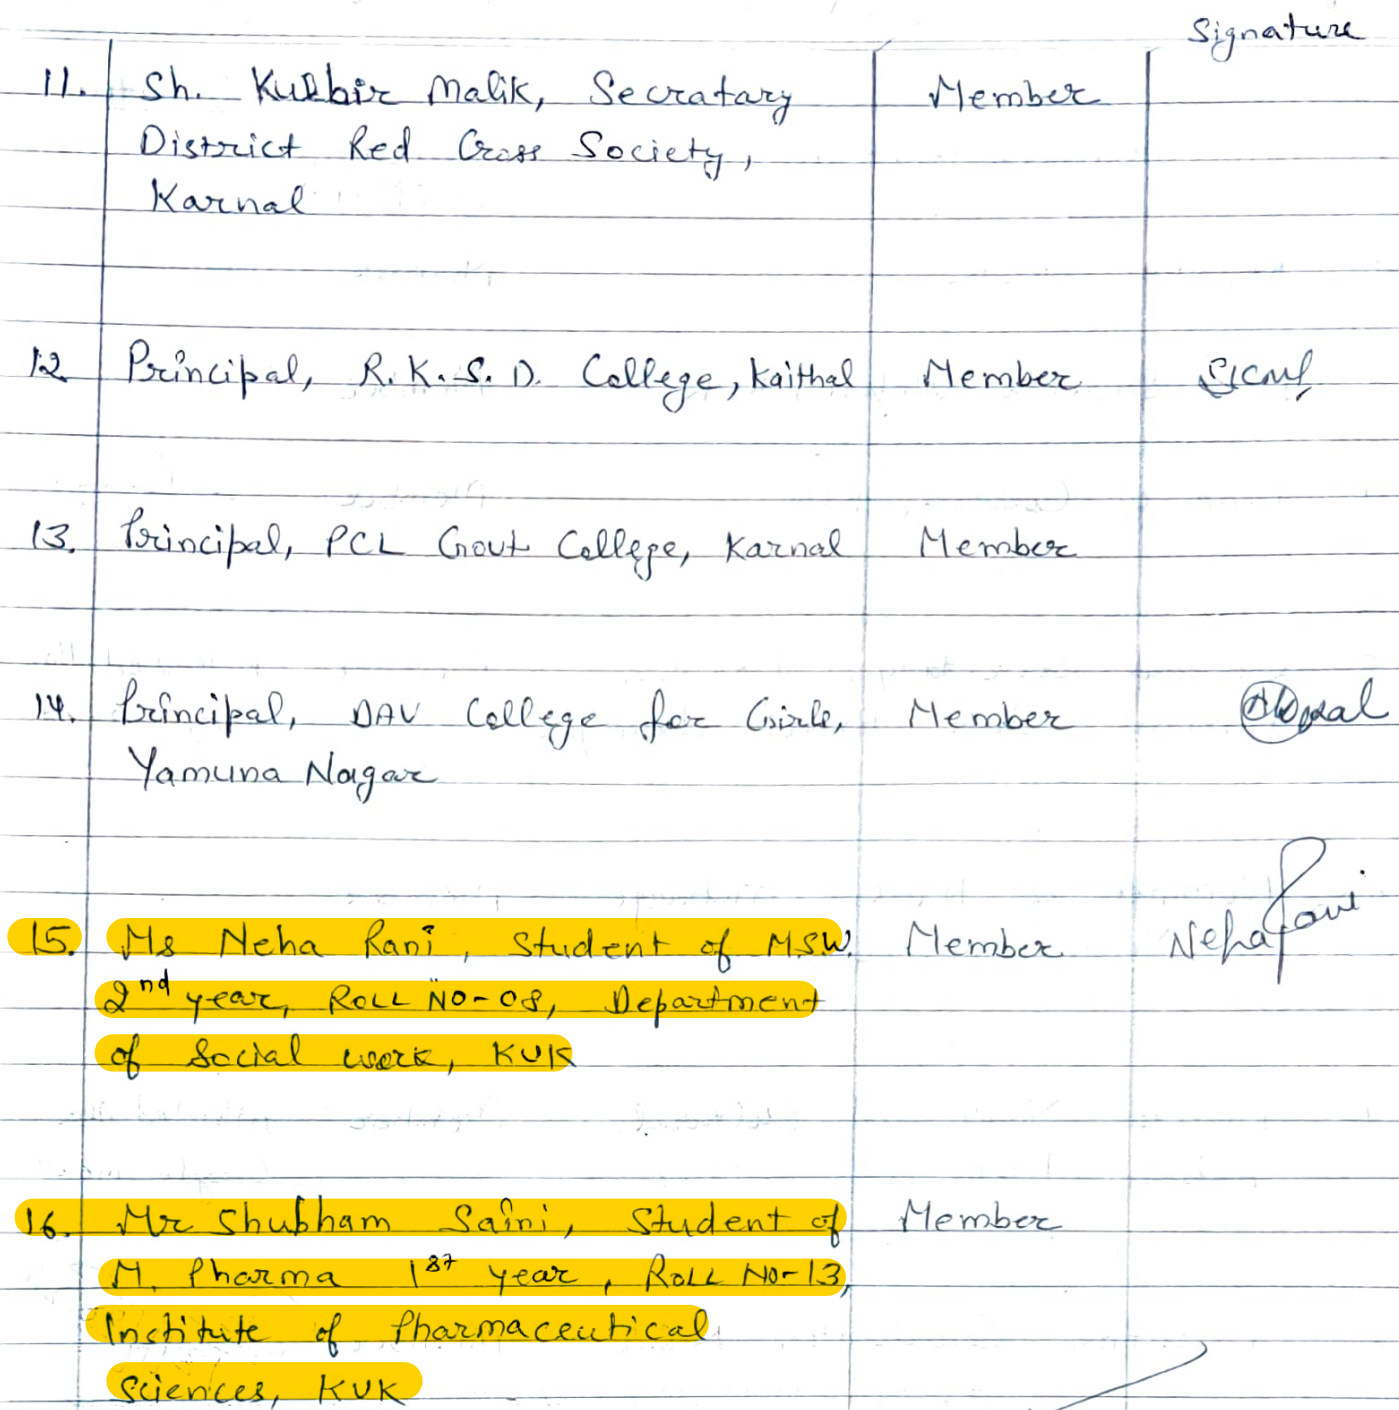 Signature
11. Sh. Kulbir Malik, Secratary Member
District Red Cross Society,
Karnal
12 Principal, R.K.S.D. College, Kaithal Member
13. Principal, PCL Govt College, Karnal Member
14. Principal, DAV College for Girls, Member
Yamuna Nagar
15. Ms Neha Rani, Student of M.S.W. Member Neha Rani
2nd year, ROLL NO-08, Department
of Social work, KUK
16. Mr Shubham Saini, Student of Member
M. Pharma 1st year, ROLL NO-13,
Institute of Pharmaceutical
Sciences, KUK